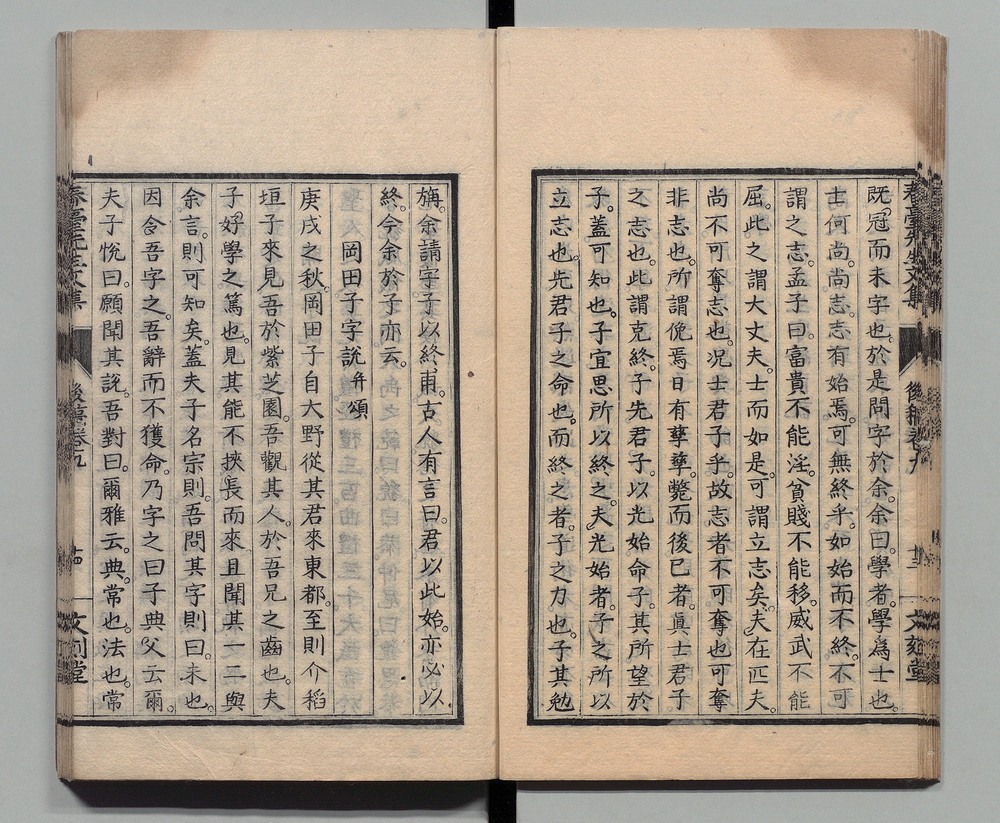 既冠而未字也。於是問字於余。余曰。學者。學爲士也。
士何尚。尚志。志有始焉。可無終乎。如始而不終。不可
謂之志。孟子曰。富貴不能淫。貧賤不能移。威武不能
屈。此之謂大丈夫。士而如是。可謂立志矣。夫在匹夫。
尚不可奪志也。况士君子乎。故志者不可奪也。可奪
非志也。所謂俛焉日有孳孳。斃而後已者。眞士君子
之志也。此謂克終。子先君子。以光始命子。其所望於
子。蓋可知也。子宜思所以終之。夫光始者。子之所以
立志也。先君子之命也。而終之者。子之力也。子其勉
旃。余請字子以終甫。古人有言曰。君以此始。亦必以
終。今余於子亦云。
岡田子字說 并頌
庚戌之秋。岡田子自大野從其君來東都。至則介稻
垣子來見吾於紫芝園。吾觀其人。於吾兄之齒也。夫
子好學之篤也。見其能不挾長而來。且聞其一二與
余言。則可知矣。蓋夫子名宗則。吾問其字則曰。未也。
因令吾字之。吾辭而不獲命。乃字之曰子典父云爾。
夫子悅曰。願聞其說。吾對曰。爾雅云。典。常也。法也。常
春臺先生文集
後稿卷九
十三
文刻堂
春臺先生文集
後稿卷九
十四
文刻堂